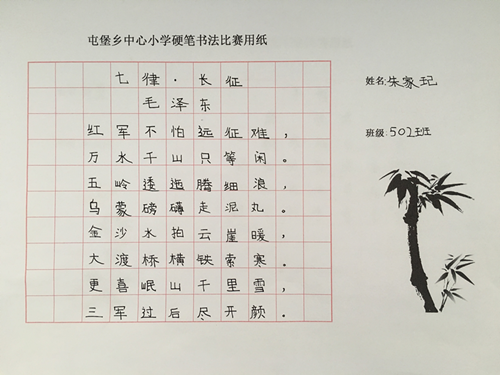 屯堡乡中心小学硬笔书法比赛用纸
七律·长征
毛泽东
红军不怕远征难，
万水千山只等闲。
五岭逶迤腾细浪，
乌蒙磅礴走泥丸。
金沙水拍云崖暖，
大渡桥横铁索寒。
更喜岷山千里雪，
三军过后尽开颜。
姓名:朱家玘
班级:502班